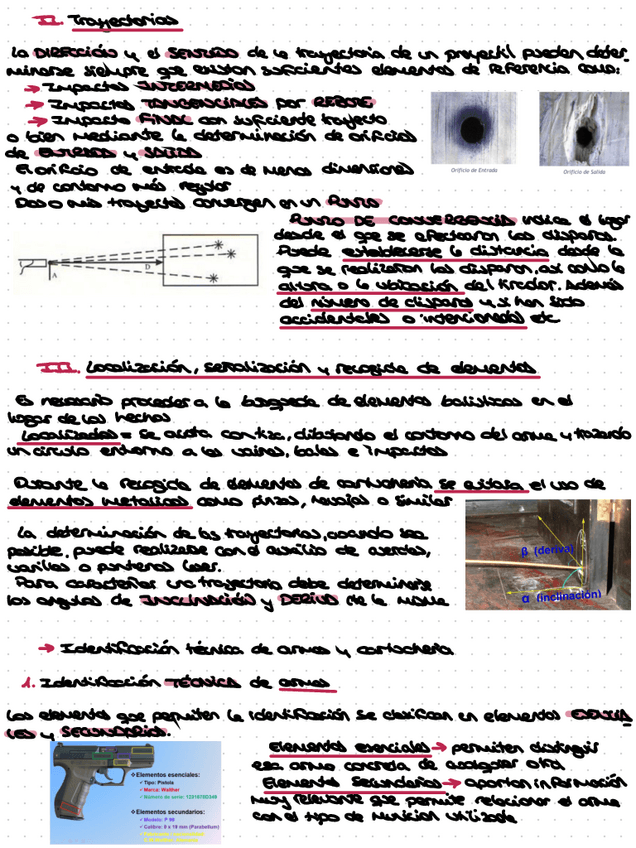 II. Trayectorias
La DIRECCIÓN y el SENTIDO de la trayectoria de un proyectil pueden deter-
minarse siempre que existan suficientes elementos de referencia como:
→ Impactos INTERMEDIOS
→ Impactos TANGENCIALES por REBOTE
→ Impacto FINAL con suficiente trayecto
o bien mediante la determinación de orificios
de ENTRADA y SALIDA
El orificio de entrada es de menos dimensiones
y de contorno más regular
Dos o más trayectos convergen en un PUNTO
Orificio de Entrada
Orificio de Salida
PUNTO DE CONVERGENCIA indica el lugar
desde el que se efectuaron los disparos.
Puede establecerse la distancia desde la
que se realizaron los disparos, así como la
altura o la ubicación del tirador. Además
del número de disparos y si han sido
accidentales o intencionados etc
A
D
III. Localización, señalización y recogida de elementos
Es necesario proceder a la búsqueda de elementos balísticos en el
lugar de los hechos
Localizados = se acota con tiza, dibujando el contorno del arma y trazando
un círculo entorno a las vainas, balas e impactos
Durante la recogida de elementos de cartuchería se evitara el uso de
elementos metálicos como pinzas, navajas o similar
La determinación de las trayectorias, cuando sea
posible, puede realizarse con el auxilio de cuerdas,
varillas o punteros laser.
Para caracterizar una trayectoria debe determinarse
los angulos de INCLINACIÓN y DERIVA de la misma
β (deriva)
α (inclinación)
→ Identificación técnica de armas y cartuchería
1. Identificación TÉCNICA de armas
Los elementos que permiten la identificación se clasifican en elementos ESENCIA
LES y SECUNDARIOS.
Elementos esenciales:
✓ Tipo: Pistola
✓ Marca: Walther
✓ Número de serie:
Elementos secundarios:
✓ Modelo: P 99
✓ Calibre: 9 x 19 mm (Parabellum)
Elementos esenciales → permiten distinguir
esa arma concreta de cualquier otra
Elementos Secundarios → aportan información
muy relevante que permite relacionar el arma
con el tipo de munición utilizada